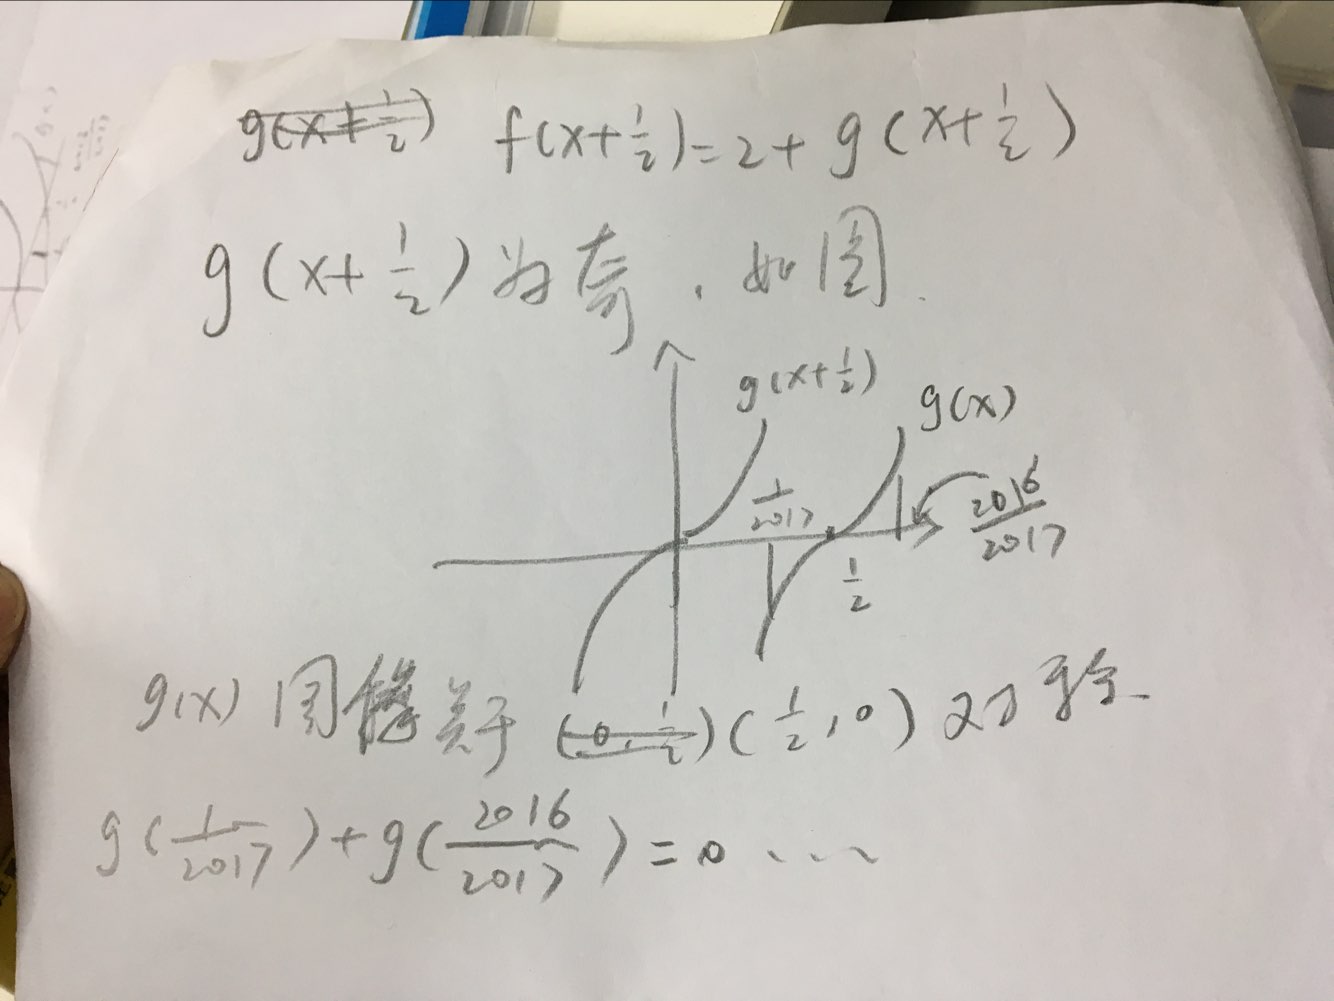 g(x+1/2) f(x+1/2)=2+g(x+1/2)
g(x+1/2)为奇.如图.
g(x+1/2)
g(x)
1/2017
2016/2017
1/2
g(x)图像关于(0,1/2)(1/2,0)对称
g(1/2017)+g(2016/2017)=0 ...